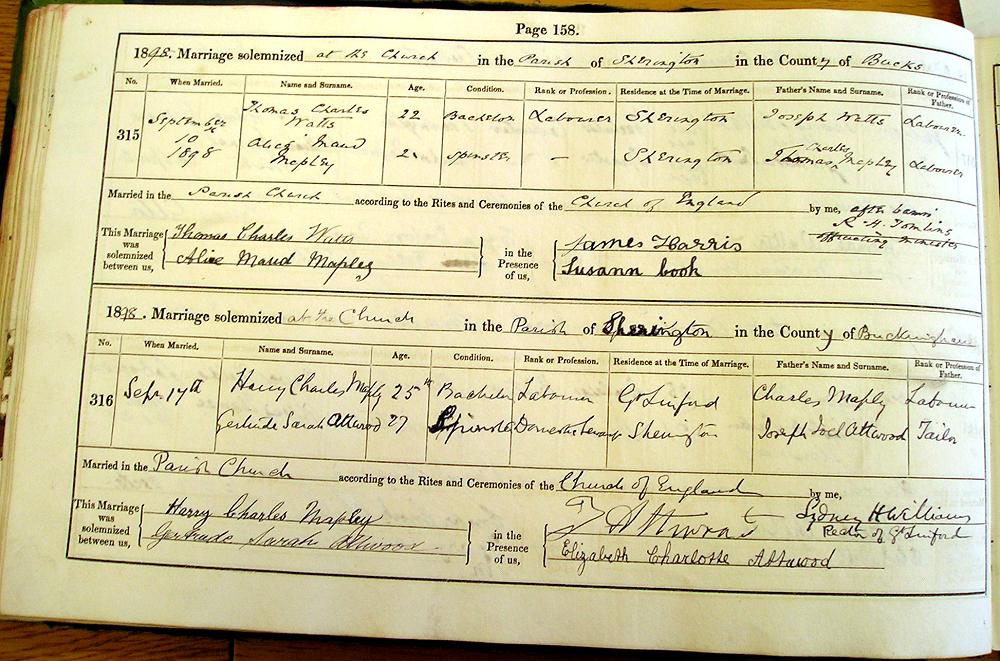 Page 158.
1898. Marriage solemnized at the Church in the Parish of Sherington in the County of Bucks
No. When Married. Name and Surname. Age. Condition. Rank or Profession. Residence at the Time of Marriage. Father's Name and Surname. Rank or Profession of Father.
315 September 10 1898 Thomas Charles Watts 22 Bachelor Labourer Sherington Joseph Watts Labourer
Alice Maud Mapley Spinster — Sherington Thomas Charles Mapley Labourer
Married in the Parish Church according to the Rites and Ceremonies of the Church of England by me, after banns
R. H. Tomlins
officiating minister
This Marriage was solemnized between us, Thomas Charles Watts
Alice Maud Mapley
in the Presence of us, James Harris
Susann book
1898. Marriage solemnized at the Church in the Parish of Sherington in the County of Buckingham
No. When Married. Name and Surname. Age. Condition. Rank or Profession. Residence at the Time of Marriage. Father's Name and Surname. Rank or Profession of Father.
316 Sepr. 17th Harry Charles Maply 25 Bachelor Labourer Gt Linford Charles Maply Labourer
Gertrude Sarah Attwood 27 Spinster Domestic Servant Sherington Joseph Joel Attwood Tailor
Married in the Parish Church according to the Rites and Ceremonies of the Church of England by me,
Sydney H Williams
Rector of Gt Linford
This Marriage was solemnized between us, Harry Charles Mapley
Gertrude Sarah Attwood
in the Presence of us, J Attwood
Elizabeth Charlotte Attwood